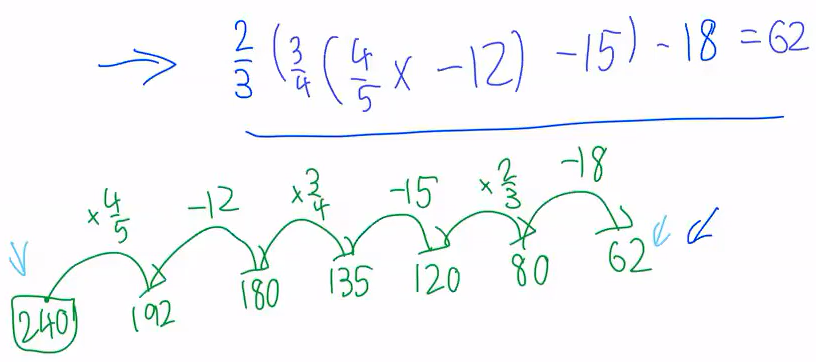 → 2/3 (3/4 (4/5 x - 12) - 15) - 18 = 62
×4/5 -12 ×3/4 -15 ×2/3 -18
240 192 180 135 120 80 62